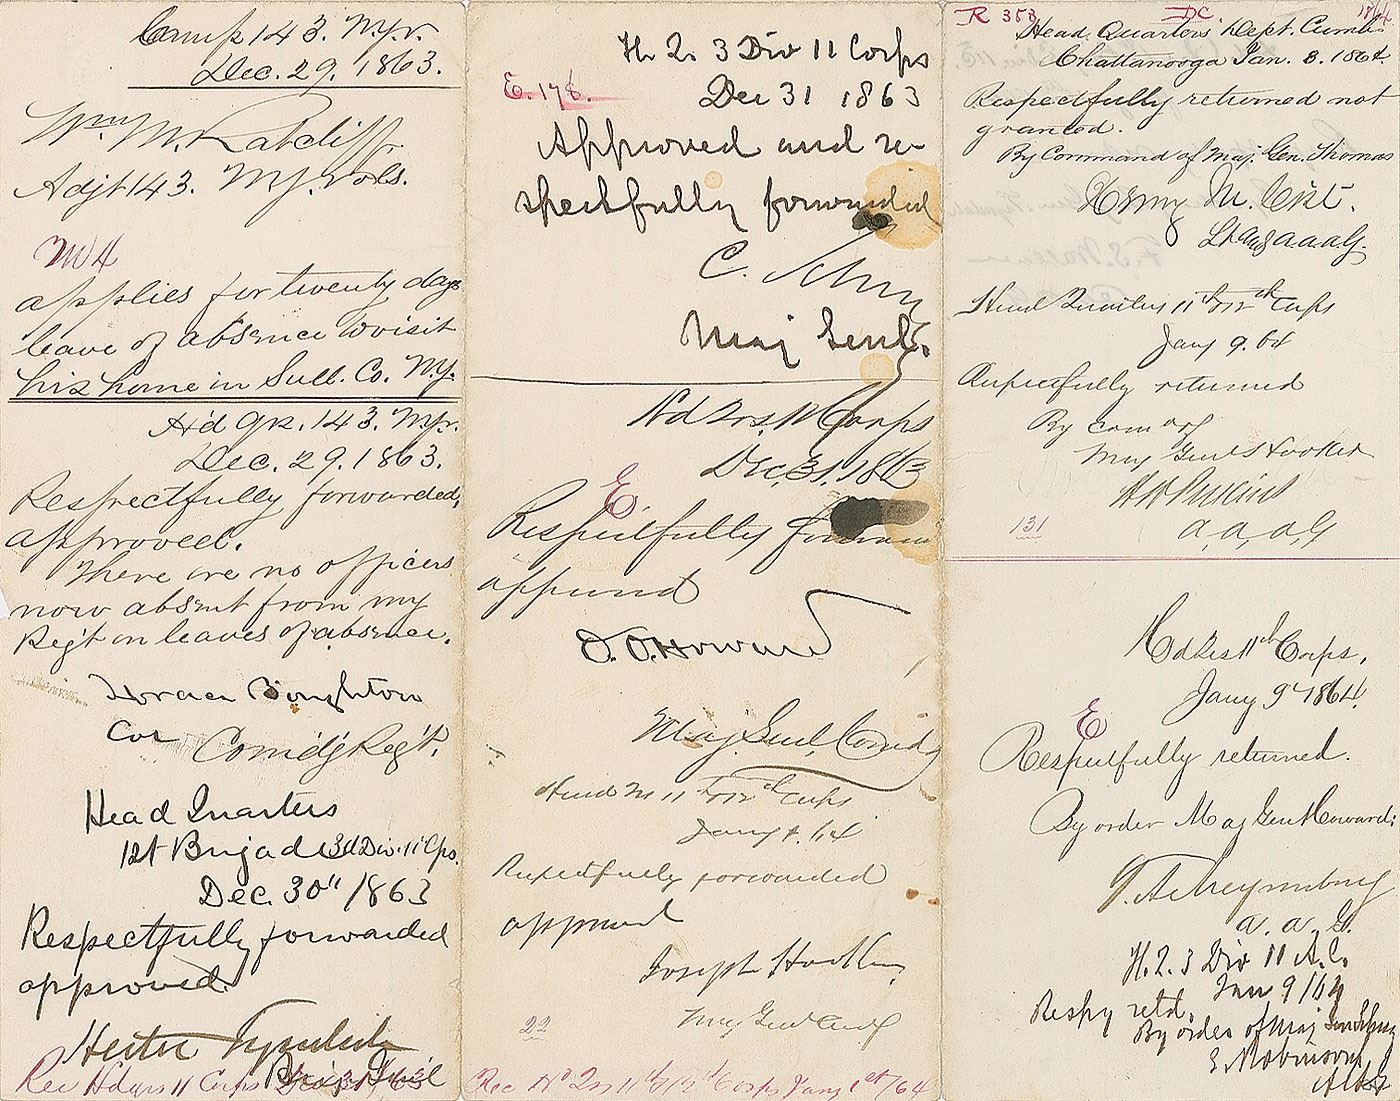 Camp 143. N.Y.V.
Dec. 29. 1863.
Wm. M. Ratcliff
Adjt 143. N.Y. Vols.
applies for twenty days
leave of absence to visit
his home in Sull. Co. N.Y.
Hd Qrs. 143. N.Y.V.
Dec. 29. 1863.
Respectfully forwarded,
approved.
There are no officers
now absent from my
Regt on leaves of absence.
Horace Boughton
Col Comd'g Reg't.
Head Quarters
1st Brigade 3d Div. 11 Cps.
Dec. 30" 1863
Respectfully forwarded
approved.
Hector Tyndale
Brig Genl
Rec Hdqrs 11 Corps Dec 31, 63
H. Q. 3 Div 11 Corps
E. 178.
Dec 31 1863
Approved and re-
spectfully forwarded
C. Schurz
Maj Genl.
Hd Qrs. 11 Corps
Dec. 31. 1863
E
Respectfully forwarded
approved
O. O. Howard
Maj. Genl. Comdg
Head Qrs 11th & 12th Corps
Jany 1. 64
Respectfully forwarded
approved
Joseph Hooker
Maj Genl Comdg
22
Rec Hd Qrs 11th & 12th Corps Jany 1st /64
R 353 DC 1864
Head Quarters Dept. Cumb.
Chattanooga Jan. 8. 1864.
Respectfully returned not
granted.
By Command of Maj. Gen. Thomas
Henry M. Cist.
Lt & A.A.A.G.
Head Quarters 11th & 12th Corps
Jany 9. 64
Respectfully returned
By com of
Maj Genl Hooker
H W Perkins
131
A. A. A. G
Hd Qrs 11th Corps,
Jany 9th 1864.
E
Respectfully returned.
By order Maj Gen Howard:
T. A. Meysenburg
A. A. G.
H. Q. 3 Div 11 A. C.
Jan 9 /64
Respy retd.
By order of Maj Gen Schurz